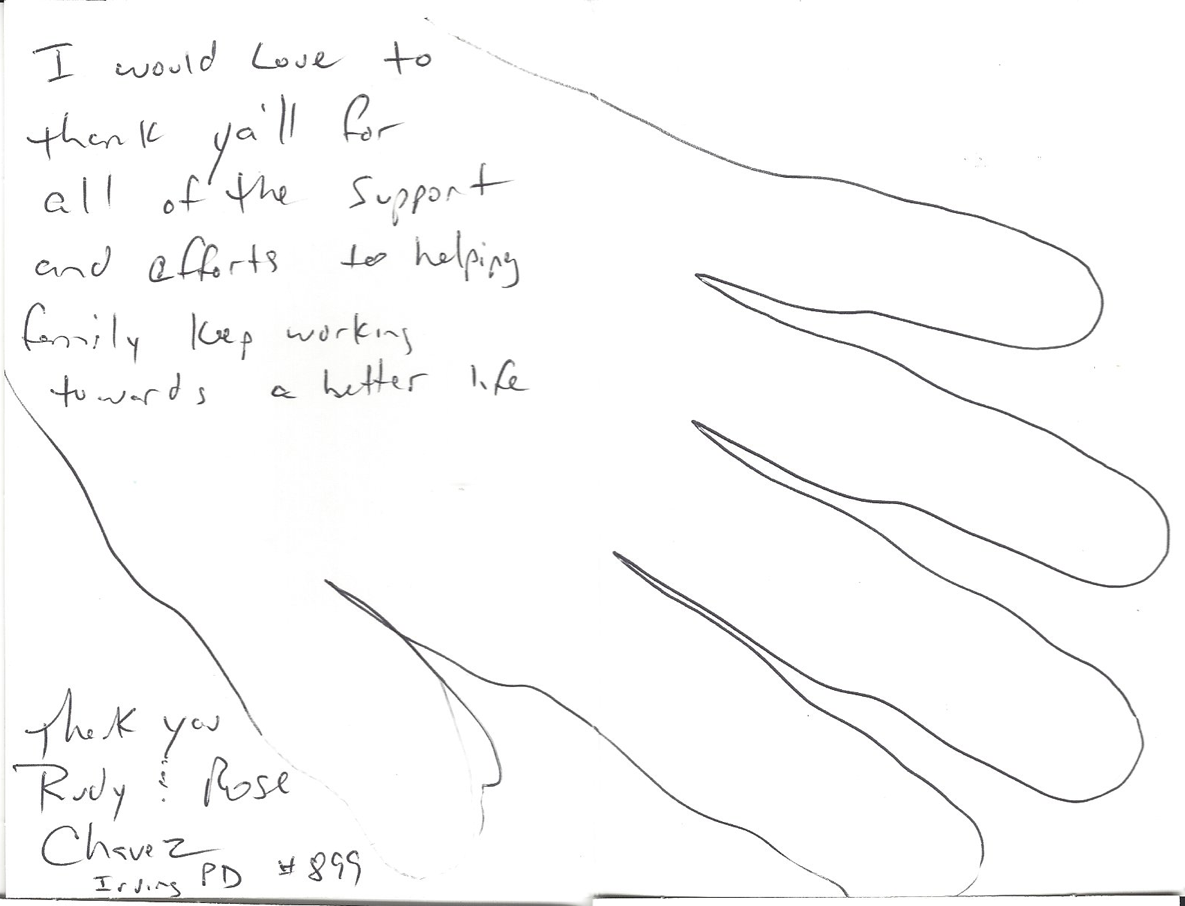 I would Love to
thank ya'll for
all of the support
and efforts to helping
family keep working
towards a better life
Thank you
Rudy & Rose
Chavez
Irving PD #899